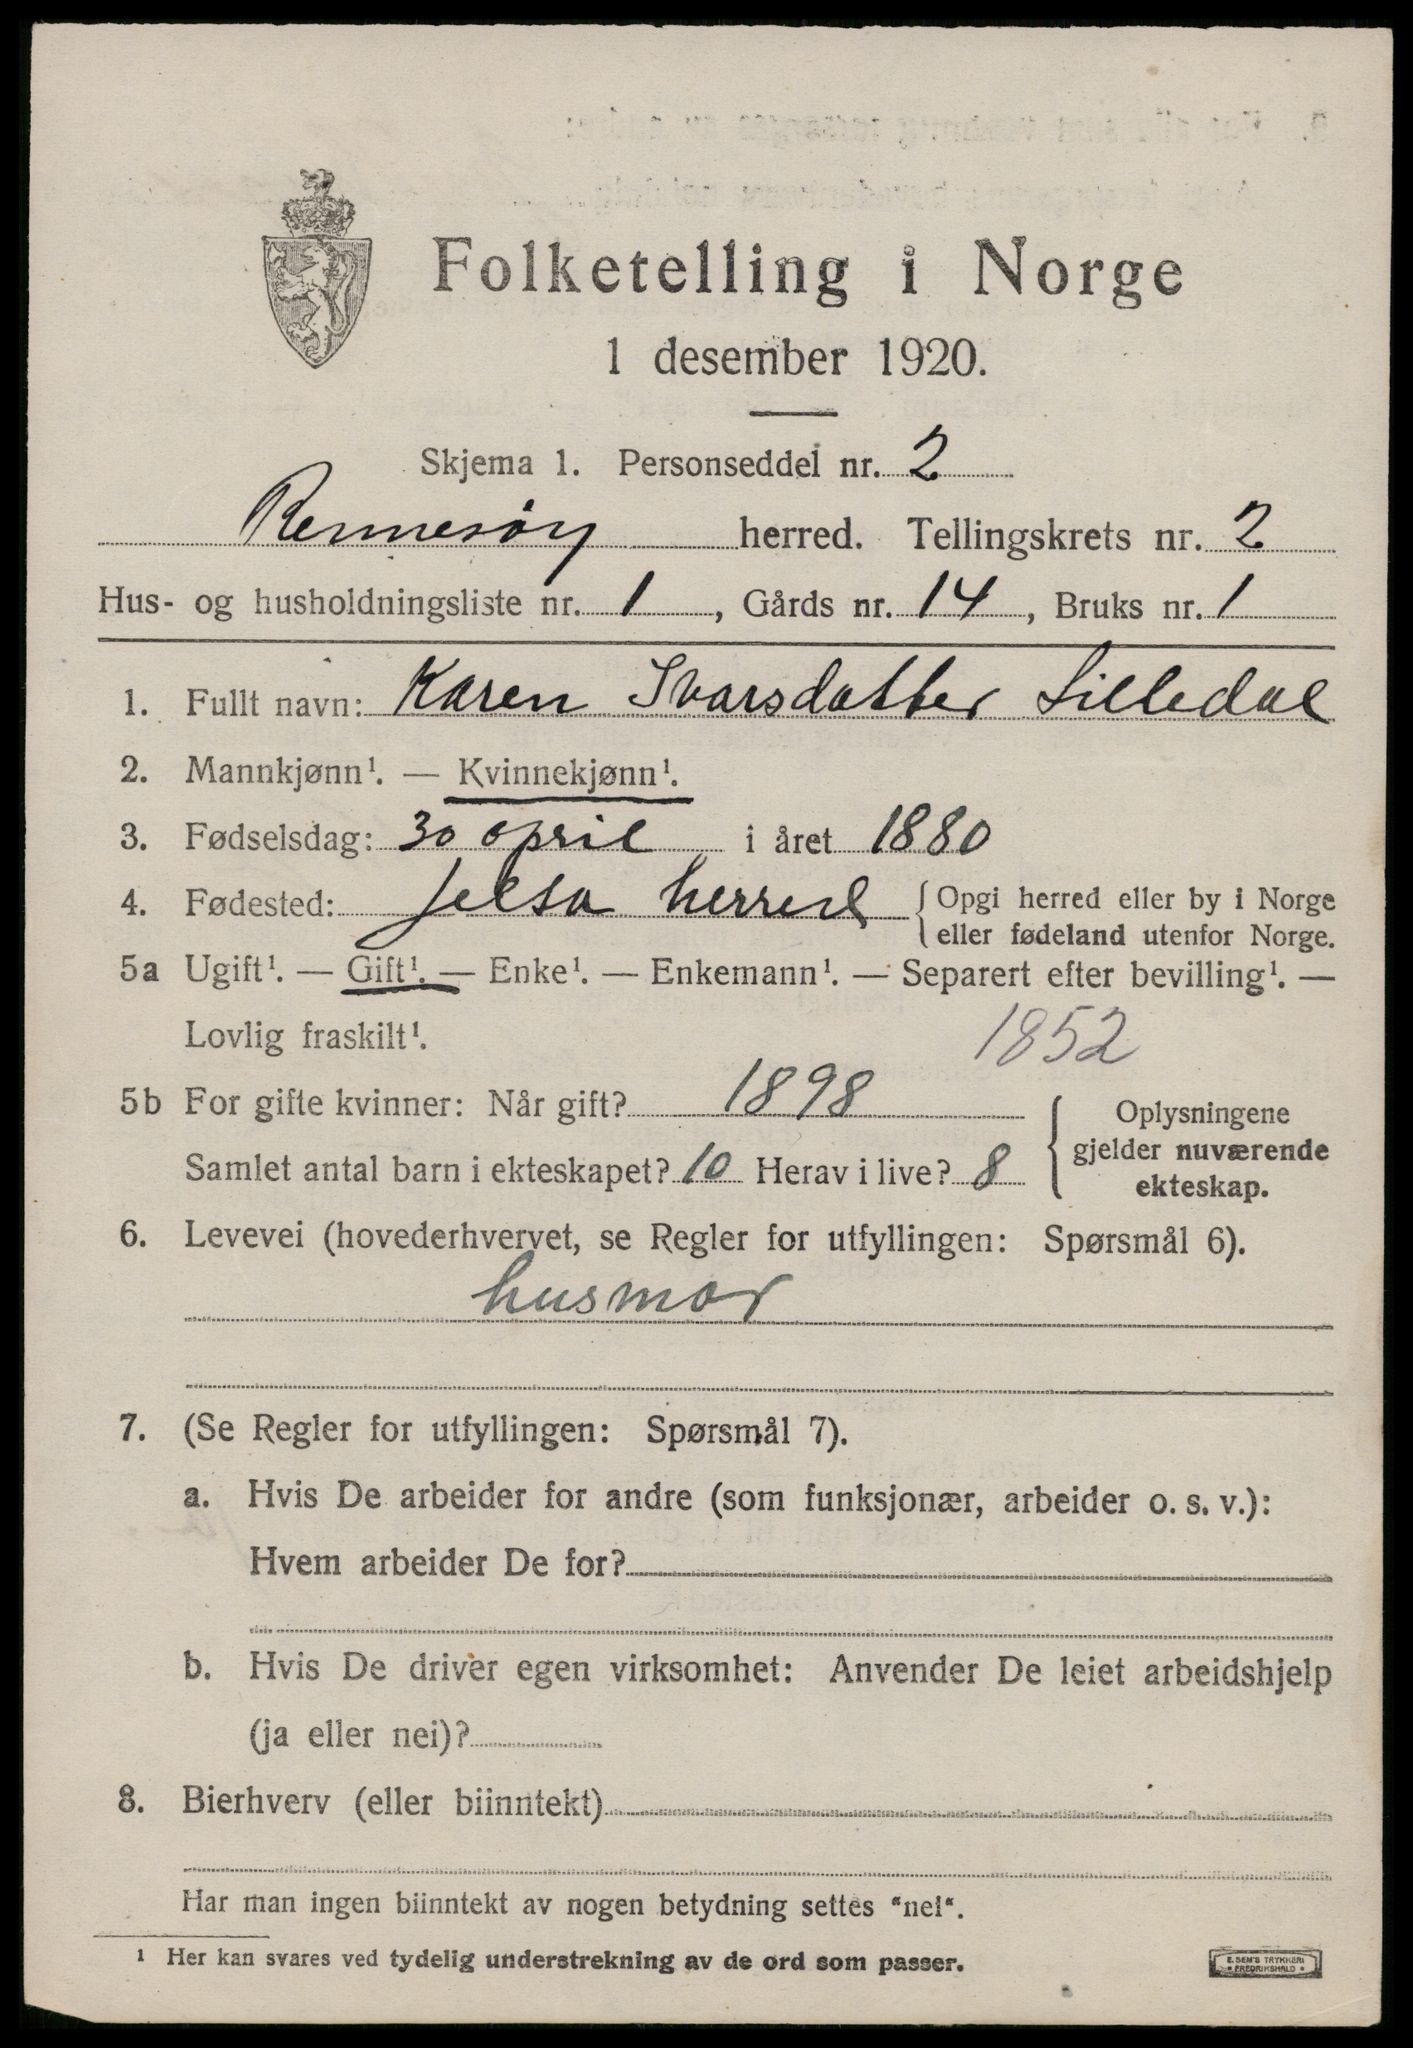 Folketelling i Norge
1 desember 1920.
Skjema 1. Personseddel nr. 2
Rennesöy herred. Tellingskrets nr. 2
Hus- og husholdningsliste nr. 1, Gårds nr. 14, Bruks nr. 1
1. Fullt navn: Karen Ivarsdatter Lilledal
2. Mannkjønn¹. — Kvinnekjønn¹.
3. Fødselsdag: 30 april i året 1880
4. Fødested: Jelsa herred { Opgi herred eller by i Norge
eller fødeland utenfor Norge.
5a Ugift¹. — Gift¹. — Enke¹. — Enkemann¹. — Separert efter bevilling¹. —
Lovlig fraskilt¹. 1852
5b For gifte kvinner: Når gift? 1898
Samlet antal barn i ekteskapet? 10 Herav i live? 8
{ Oplysningene
gjelder nuværende
ekteskap.
6. Levevei (hovederhvervet, se Regler for utfyllingen: Spørsmål 6).
husmor
7. (Se Regler for utfyllingen: Spørsmål 7).
a. Hvis De arbeider for andre (som funksjonær, arbeider o. s. v.):
Hvem arbeider De for?
b. Hvis De driver egen virksomhet: Anvender De leiet arbeidshjelp
(ja eller nei)?
8. Bierhverv (eller biinntekt)
Har man ingen biinntekt av nogen betydning settes "nei".
¹ Her kan svares ved tydelig understrekning av de ord som passer.
E. SEM'S TRYKKERI
FREDRIKSHALD